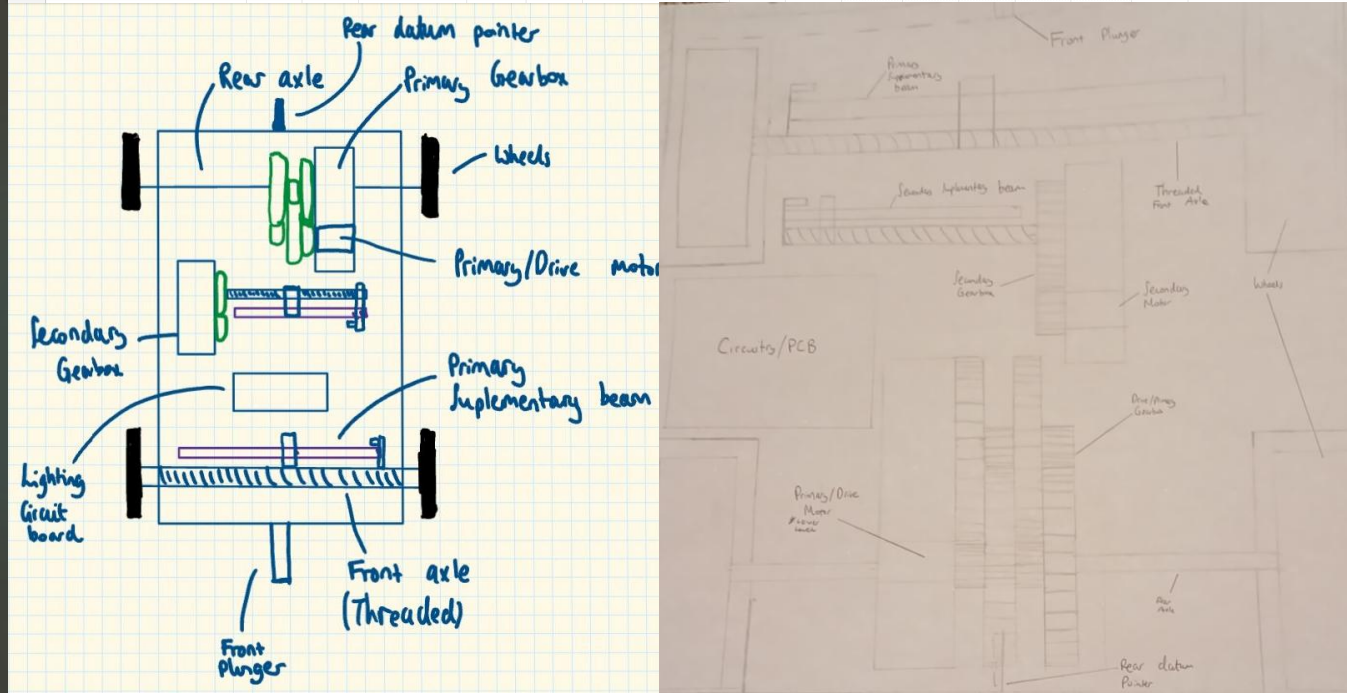 Rear datum pointer
Rear axle
Primary Gearbox
Wheels
Primary/Drive motor
Secondary
Gearbox
Primary
Suplementary beam
Lighting
Circuit
board
Front axle
(Threaded)
Front
Plunger
Front Plunger
Primary
Suplementary
beam
Threaded
Front Axle
Secondary Suplementary beam
Secondary
Gearbox
Secondary
Motor
Wheels
Circuitry/PCB
Primary/Drive
Motor
Rear
Axle
Rear datum
Pointer